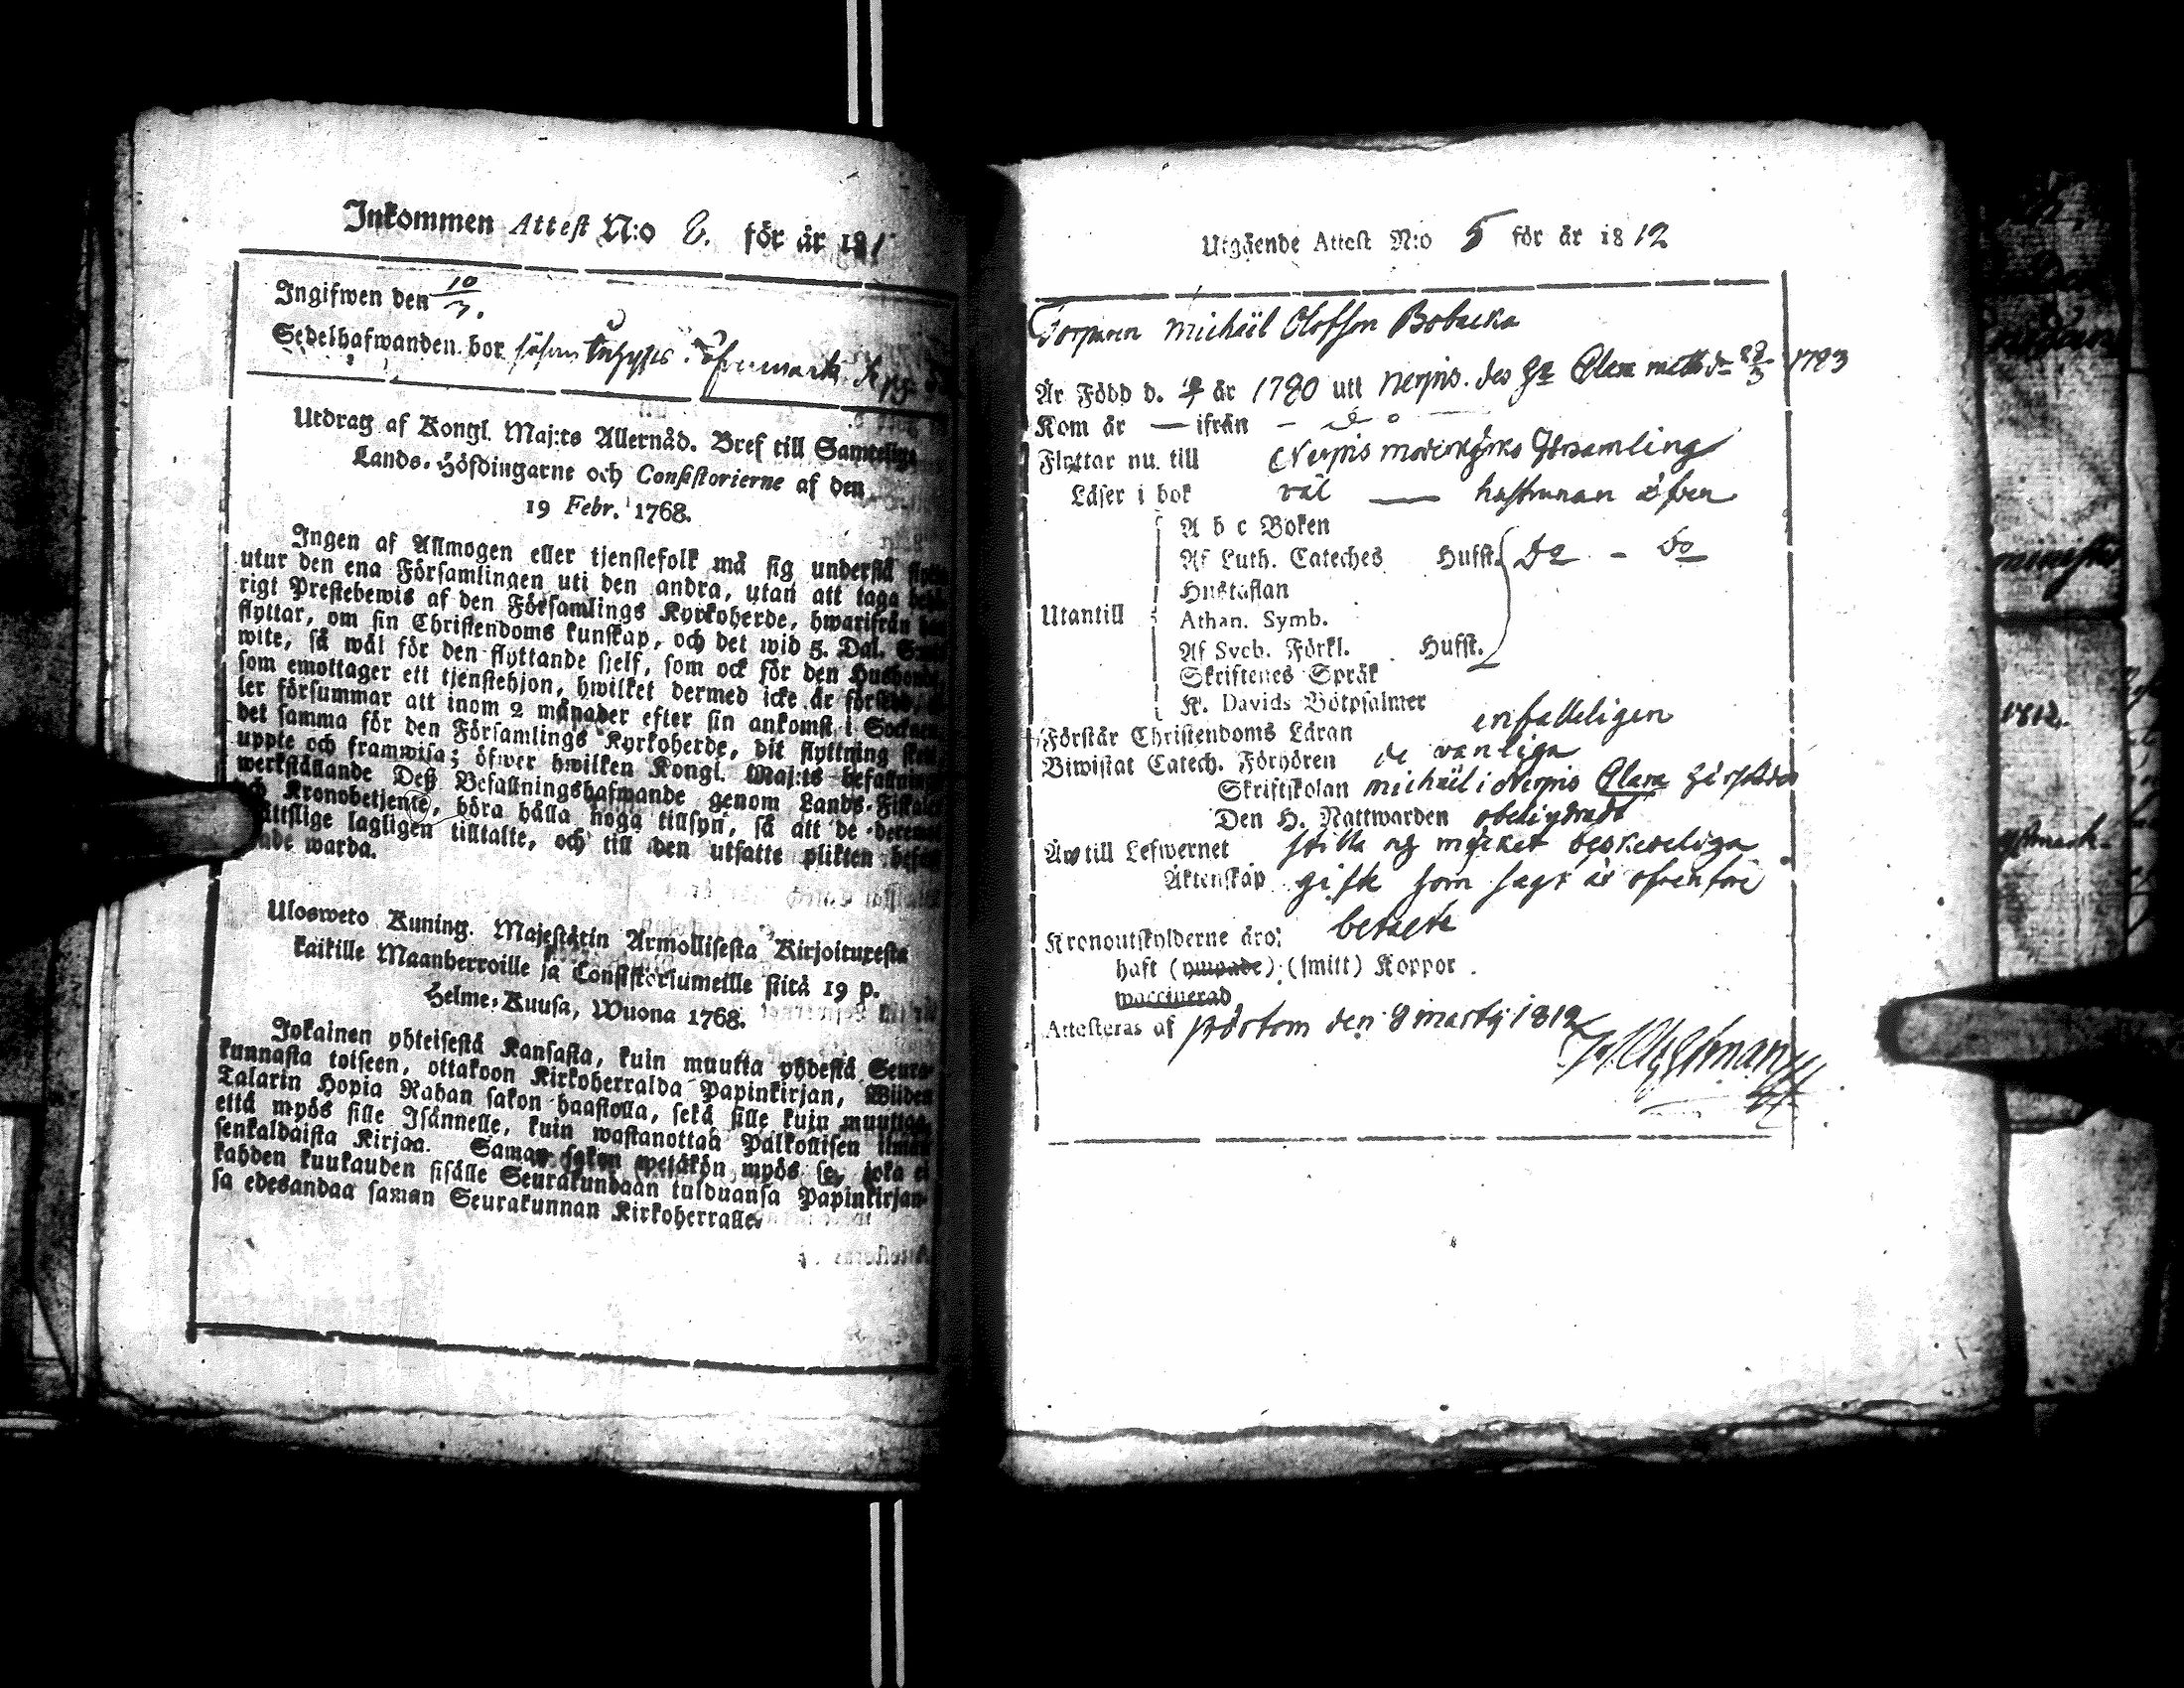 Inkommen Attest N:o 8. för år 181
Ingifwen den 10/3.
Sedelhafwanden bor
Utdrag af Kongl. Maj:ts Allernåd. Bref till Samtelige
Lands-Höfdingarne och Consistorierne af den
19 Febr. 1768.
Ingen af Allmogen eller tjenstefolk må sig understå flytta
utur den ena Församlingen uti den andra, utan att taga behö-
rigt Prestebewis af den Församlings Kyrkoherde, hwarifrån han
flyttar, om sin Christendoms kunskap, och det wid 5. Dal. S:mts
wite, så wäl för den flyttande sjelf, som ock för den Husbonde,
som emottager ett tjenstehjon, hwilket dermed icke är försedd, el-
ler försummar att inom 2 månader efter sin ankomst i Socknen,
det samma för den Församlings Kyrkoherde, dit flyttning sker,
uppte och framwisa; öfwer hwilken Kongl. Maj:ts befallnings
werkställande Deß Befallningshafwande genom Lands-Fiskaler
och Kronobetjente, böra hålla noga tillsyn, så att de deremot
brättslige lagligen tilltalte, och till den utsatte plikten befor-
drade warda.
Ulosweto Kuning. Majestätin Armollisesta Kirjoituxesta
kaikille Maanherroille ja Consistoriumeille siitä 19 p.
Helme-Kuusa, Wuona 1768.
Jokainen yhteisestä Kansasta, kuin muutta yhdestä Seura-
kunnasta toiseen, ottakoon Kirkoherralda Papinkirjan, Wiiden
Talarin Hopia Rahan sakon haastolla, sekä sille kuin muuttaa,
että myös sille Isännelle, kuin wastanottaa Palkollisen ilman
senkaldaista Kirjaa. Saman sakon wetäkön myös se, joka ei
kahden kuukauden sisälle Seurakundaan tulduansa Papinkirjan-
sa edesandaa saman Seurakunnan Kirkoherralle.
Utgående Attest N:o 5 för år 1812
Torparen Michäil Olofsson Bobacka
Är Född d. år 1780 utt Nerpis. des Hu Clara Matts dr 22/3 1783
Kom år — ifrån - do
Flyttar nu till Nerpis moderkyrko Församling
Läser i bok väl — hustrunan äfven
A b c Boken
Af Luth. Cateches Hufst. Do - Do
Hustaflan
Utantill Athan. Symb.
Af Sveb. Förkl. Hufst.
Skriftenes Språk
K. Davids Botpsalmer
Förstår Christendoms Läran enfalleligen
Biwistat Catech. Förhören de vanliga
Skriftskolan Michäil i Nerpis Clara
Den H. Nattwarden obehindradt
Är till Lefwernet stilla og mycket beskedeliga
Äktenskap gifte som sagt är ofvanföre
Kronoutskylderne äro: betalte
haft (ympade) (smitt) Koppor.
waccinerad
Attesteras af Pörtom den 8 Martij 1812
1812.